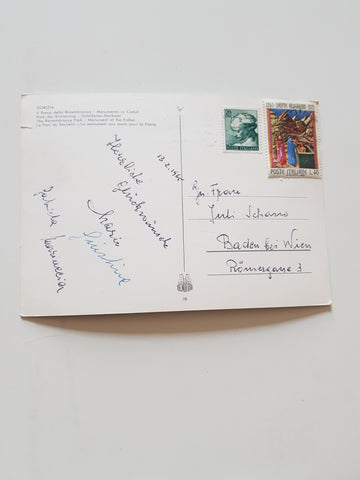 GORIZIA
Il Parco della Rimembranza - Monumento ai Caduti
Park der Erinnerung - Gefallenen-Denkmal
The Remembrance Park - Monument of the Fallen
Le Parc du Souvenir - Le monument aux morts pour la Patrie
13.2.1966
Herzliche
Glückwünsche
Mario
Giustina
Fr. Frau
Juli
Baden bei Wien
Römergasse 3
POSTE ITALIANE
L.40
76